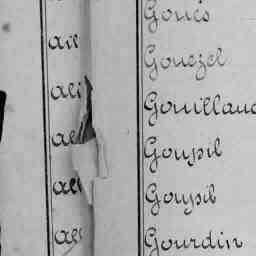 Goues
ail Gouezel
ali Gouillaud
al Goupil
al Goupil
al Gourdin